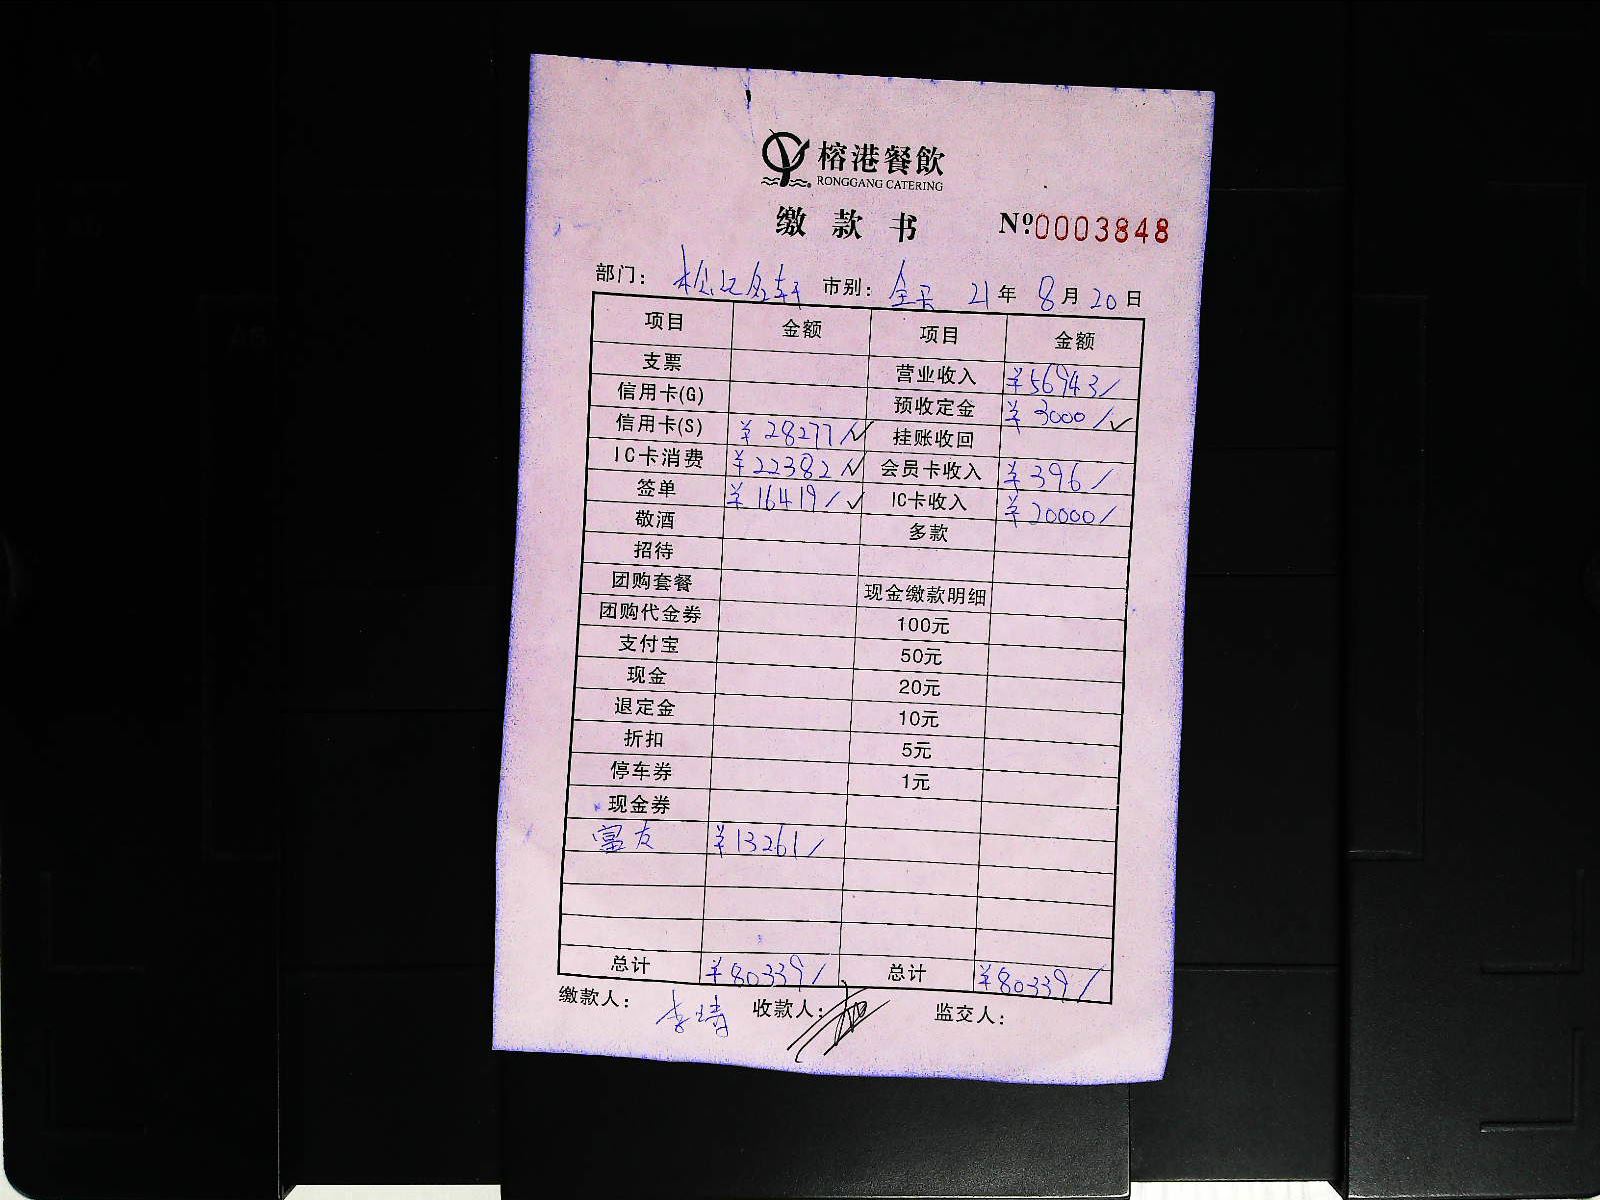 榕港餐飲
RONGGANG CATERING
缴款书 Nº:0003848
部门: 市别: 全天 21年 8月 20日
项目 金额 项目 金额
支票 营业收入 ¥56943/
信用卡(G) 预收定金 ¥3000/✓
信用卡(S) ¥28277/✓ 挂账收回
IC卡消费 ¥22382/✓ 会员卡收入 ¥396/
签单 ¥16419/✓ IC卡收入 ¥20000/
敬酒 多款
招待
团购套餐 现金缴款明细
团购代金券 100元
支付宝 50元
现金 20元
退定金 10元
折扣 5元
停车券 1元
现金券
富友 ¥13261/
总计 ¥80339/ 总计 ¥80339/
缴款人: 李靖 收款人: 监交人: